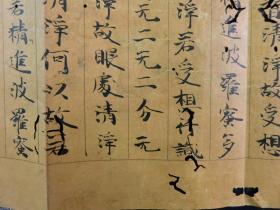 清淨故受想
進波羅蜜多
淨若受想行識
无二无二分无
淨故眼處清淨
清淨何以故若
若精進波羅蜜